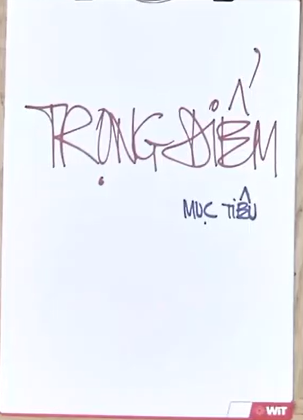 TRỌNG ĐIỂM
MỤC TIÊU
WIT